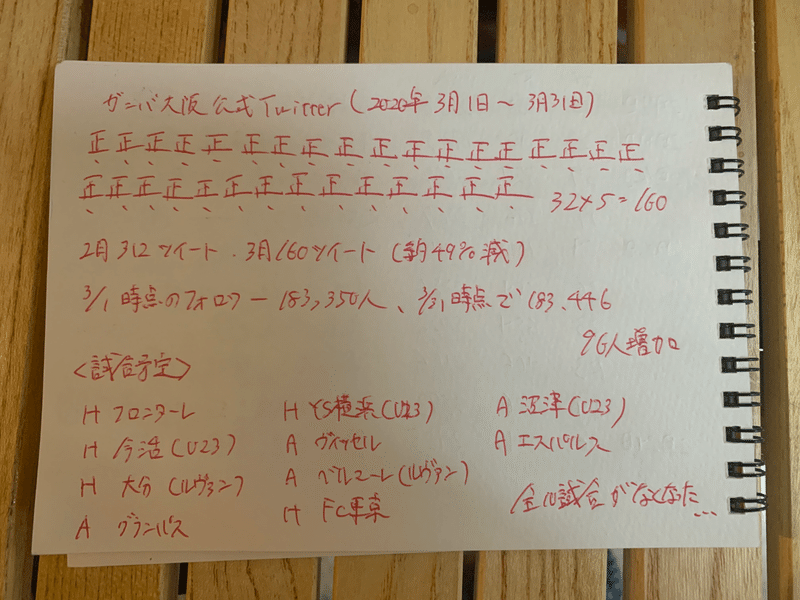 ガンバ大阪公式Twitter(2020年3月1日～3月31日)
正正正正正正正正正正正正正正正正正正
正正正正正正正正正正正正正正 32×5=160
2月312ツイート.3月160ツイート(約49%減)
3/1時点のフォロワー183,350人、3/31時点で183,446
96人増加
<試合予定>
H フロンターレ
H 今治(U23)
H 大分(ルヴァン)
A グランパス
H YS横浜(U23)
A ヴィッセル
A ベルマーレ(ルヴァン)
H FC東京
A 沼津(U23)
A エスパルス
全10試合がなくなった…